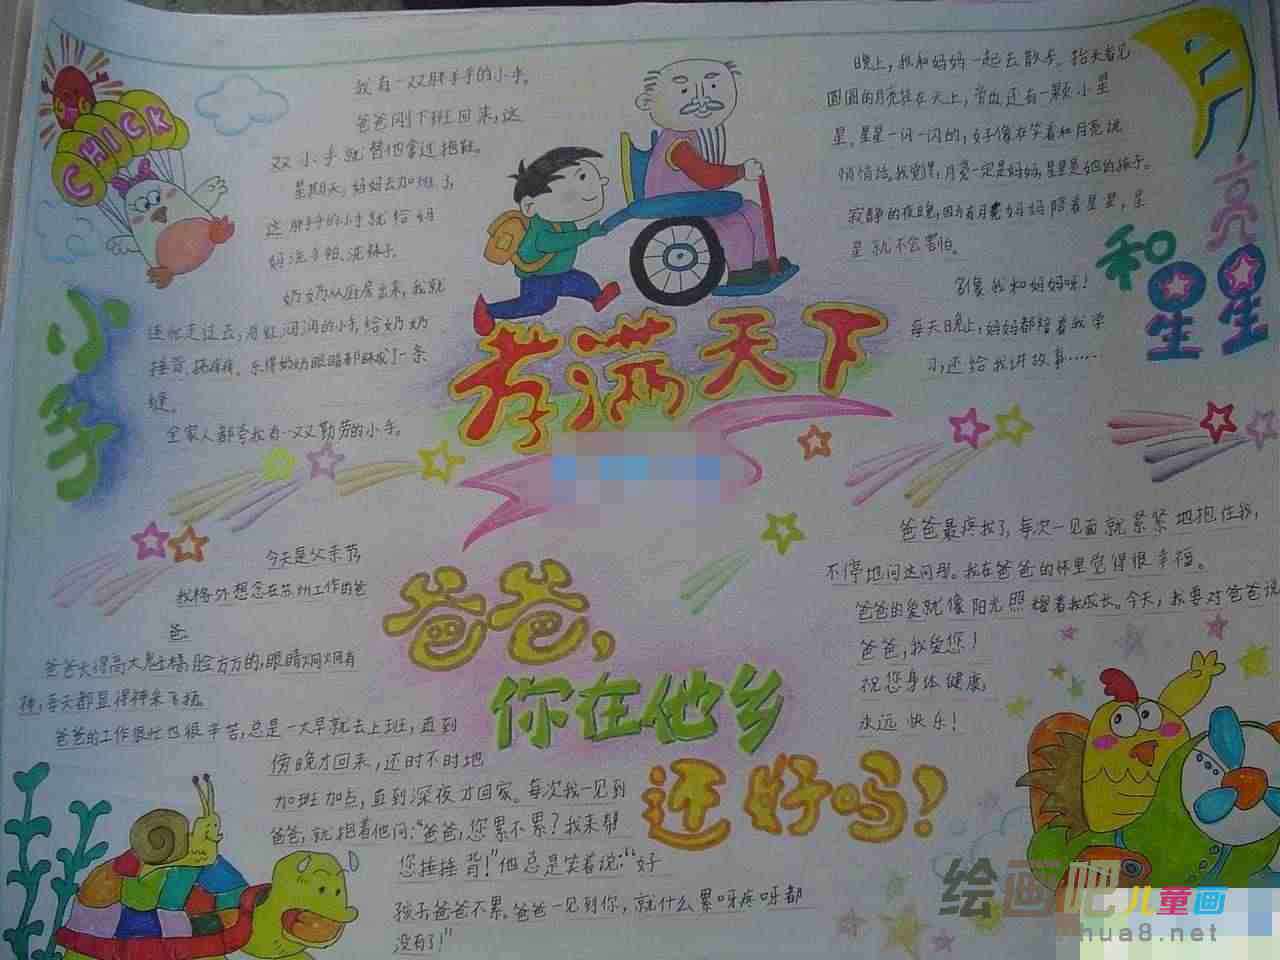 小手
CHICK
我有一双胖乎乎的小手。
爸爸刚下班回来,这
双小手就替他拿过拖鞋。
星期天,妈妈去加班了,
这胖乎乎的小手就给妈
妈洗手帕、洗袜子。
奶奶从厨房出来,我就
连忙走过去,用红润润的小手,给奶奶
捶背、挠痒痒。乐得奶奶眼睛都眯成了一条
缝。
全家人都夸我有一双勤劳的小手。
孝满天下
月亮和星星
晚上,我和妈妈一起去散步。抬头看见
圆圆的月亮挂在天上,旁边还有一颗小星
星。星星一闪一闪的,好像在笑着和月亮说
悄悄话。我觉得,月亮一定是妈妈,星星是她的孩子。
寂静的夜晚,因为有月亮妈妈陪着星星,星
星就不会害怕。
多像我和妈妈呀!
每天晚上,妈妈都陪着我学
习,还给我讲故事……
爸爸,
你在他乡
还好吗?
今天是父亲节,
我格外想念在苏州工作的爸
爸。
爸爸长得高大魁梧,脸方方的,眼睛炯炯有
神,每天都显得神采飞扬。
爸爸的工作很忙也很辛苦,总是一大早就去上班,直到
傍晚才回来,还时不时地
加班加点,直到深夜才回家。每次我一见到
爸爸,就抱着他问:“爸爸,您累不累?我来帮
您捶捶背!”他总是笑着说:“好
孩子爸爸不累。爸爸一见到你,就什么累呀疼呀都
没有了!”
爸爸最疼我了,每次一见面就紧紧地抱住我,
不停地问这问那。我在爸爸的怀里觉得很幸福。
爸爸的爱就像阳光照耀着我成长。今天,我要对爸爸说
爸爸,我爱您!
祝您身体健康,
永远快乐!
绘画吧儿童画
hua8.net